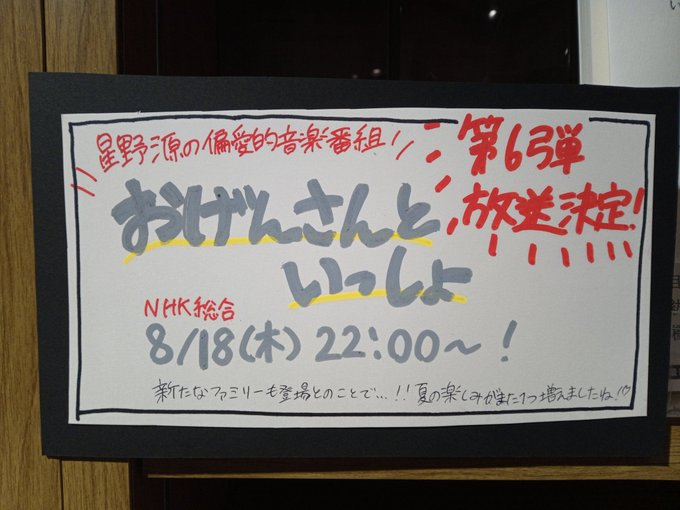 星野源の偏愛的音楽番組
第6弾
放送決定!
おげんさんと
いっしょ
NHK総合
8/18(木) 22:00~!
新たなファミリーも登場とのことで…!! 夏の楽しみがまた1つ増えましたね!♡